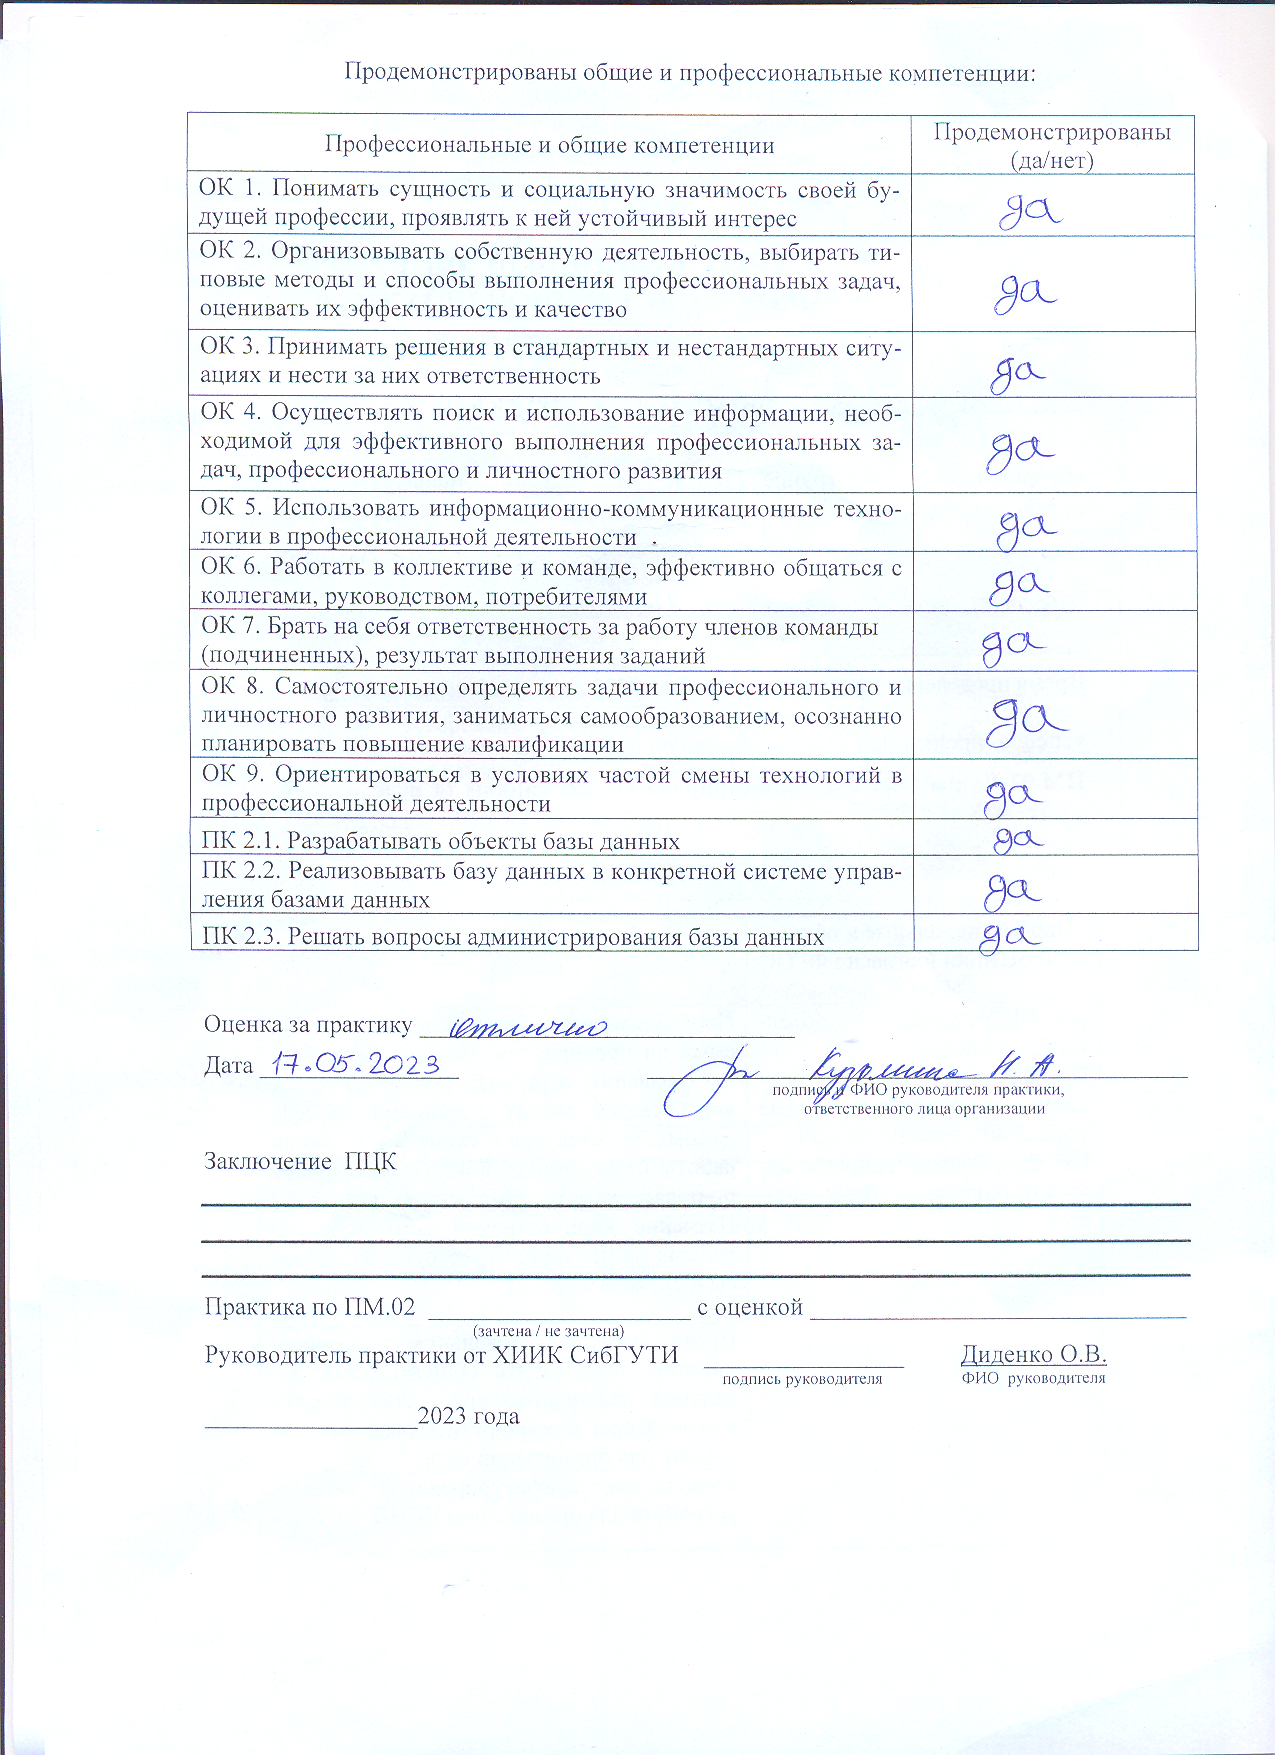 Продемонстрированы общие и профессиональные компетенции:
Профессиональные и общие компетенции
Продемонстрированы
(да/нет)
ОК 1. Понимать сущность и социальную значимость своей бу-
дущей профессии, проявлять к ней устойчивый интерес
да
ОК 2. Организовывать собственную деятельность, выбирать ти-
повые методы и способы выполнения профессиональных задач,
оценивать их эффективность и качество
да
ОК 3. Принимать решения в стандартных и нестандартных ситу-
ациях и нести за них ответственность
да
ОК 4. Осуществлять поиск и использование информации, необ-
ходимой для эффективного выполнения профессиональных за-
дач, профессионального и личностного развития
да
ОК 5. Использовать информационно-коммуникационные техно-
логии в профессиональной деятельности .
да
ОК 6. Работать в коллективе и команде, эффективно общаться с
коллегами, руководством, потребителями
да
ОК 7. Брать на себя ответственность за работу членов команды
(подчиненных), результат выполнения заданий
да
ОК 8. Самостоятельно определять задачи профессионального и
личностного развития, заниматься самообразованием, осознанно
планировать повышение квалификации
да
ОК 9. Ориентироваться в условиях частой смены технологий в
профессиональной деятельности
да
ПК 2.1. Разрабатывать объекты базы данных
да
ПК 2.2. Реализовывать базу данных в конкретной системе управ-
ления базами данных
да
ПК 2.3. Решать вопросы администрирования базы данных
да
Оценка за практику отлично
Дата 17.05.2023 Кузьмина Н. А.
подпись и ФИО руководителя практики,
ответственного лица организации
Заключение ПЦК
Практика по ПМ.02 с оценкой
(зачтена / не зачтена)
Руководитель практики от ХИИК СибГУТИ Диденко О.В.
подпись руководителя ФИО руководителя
2023 года